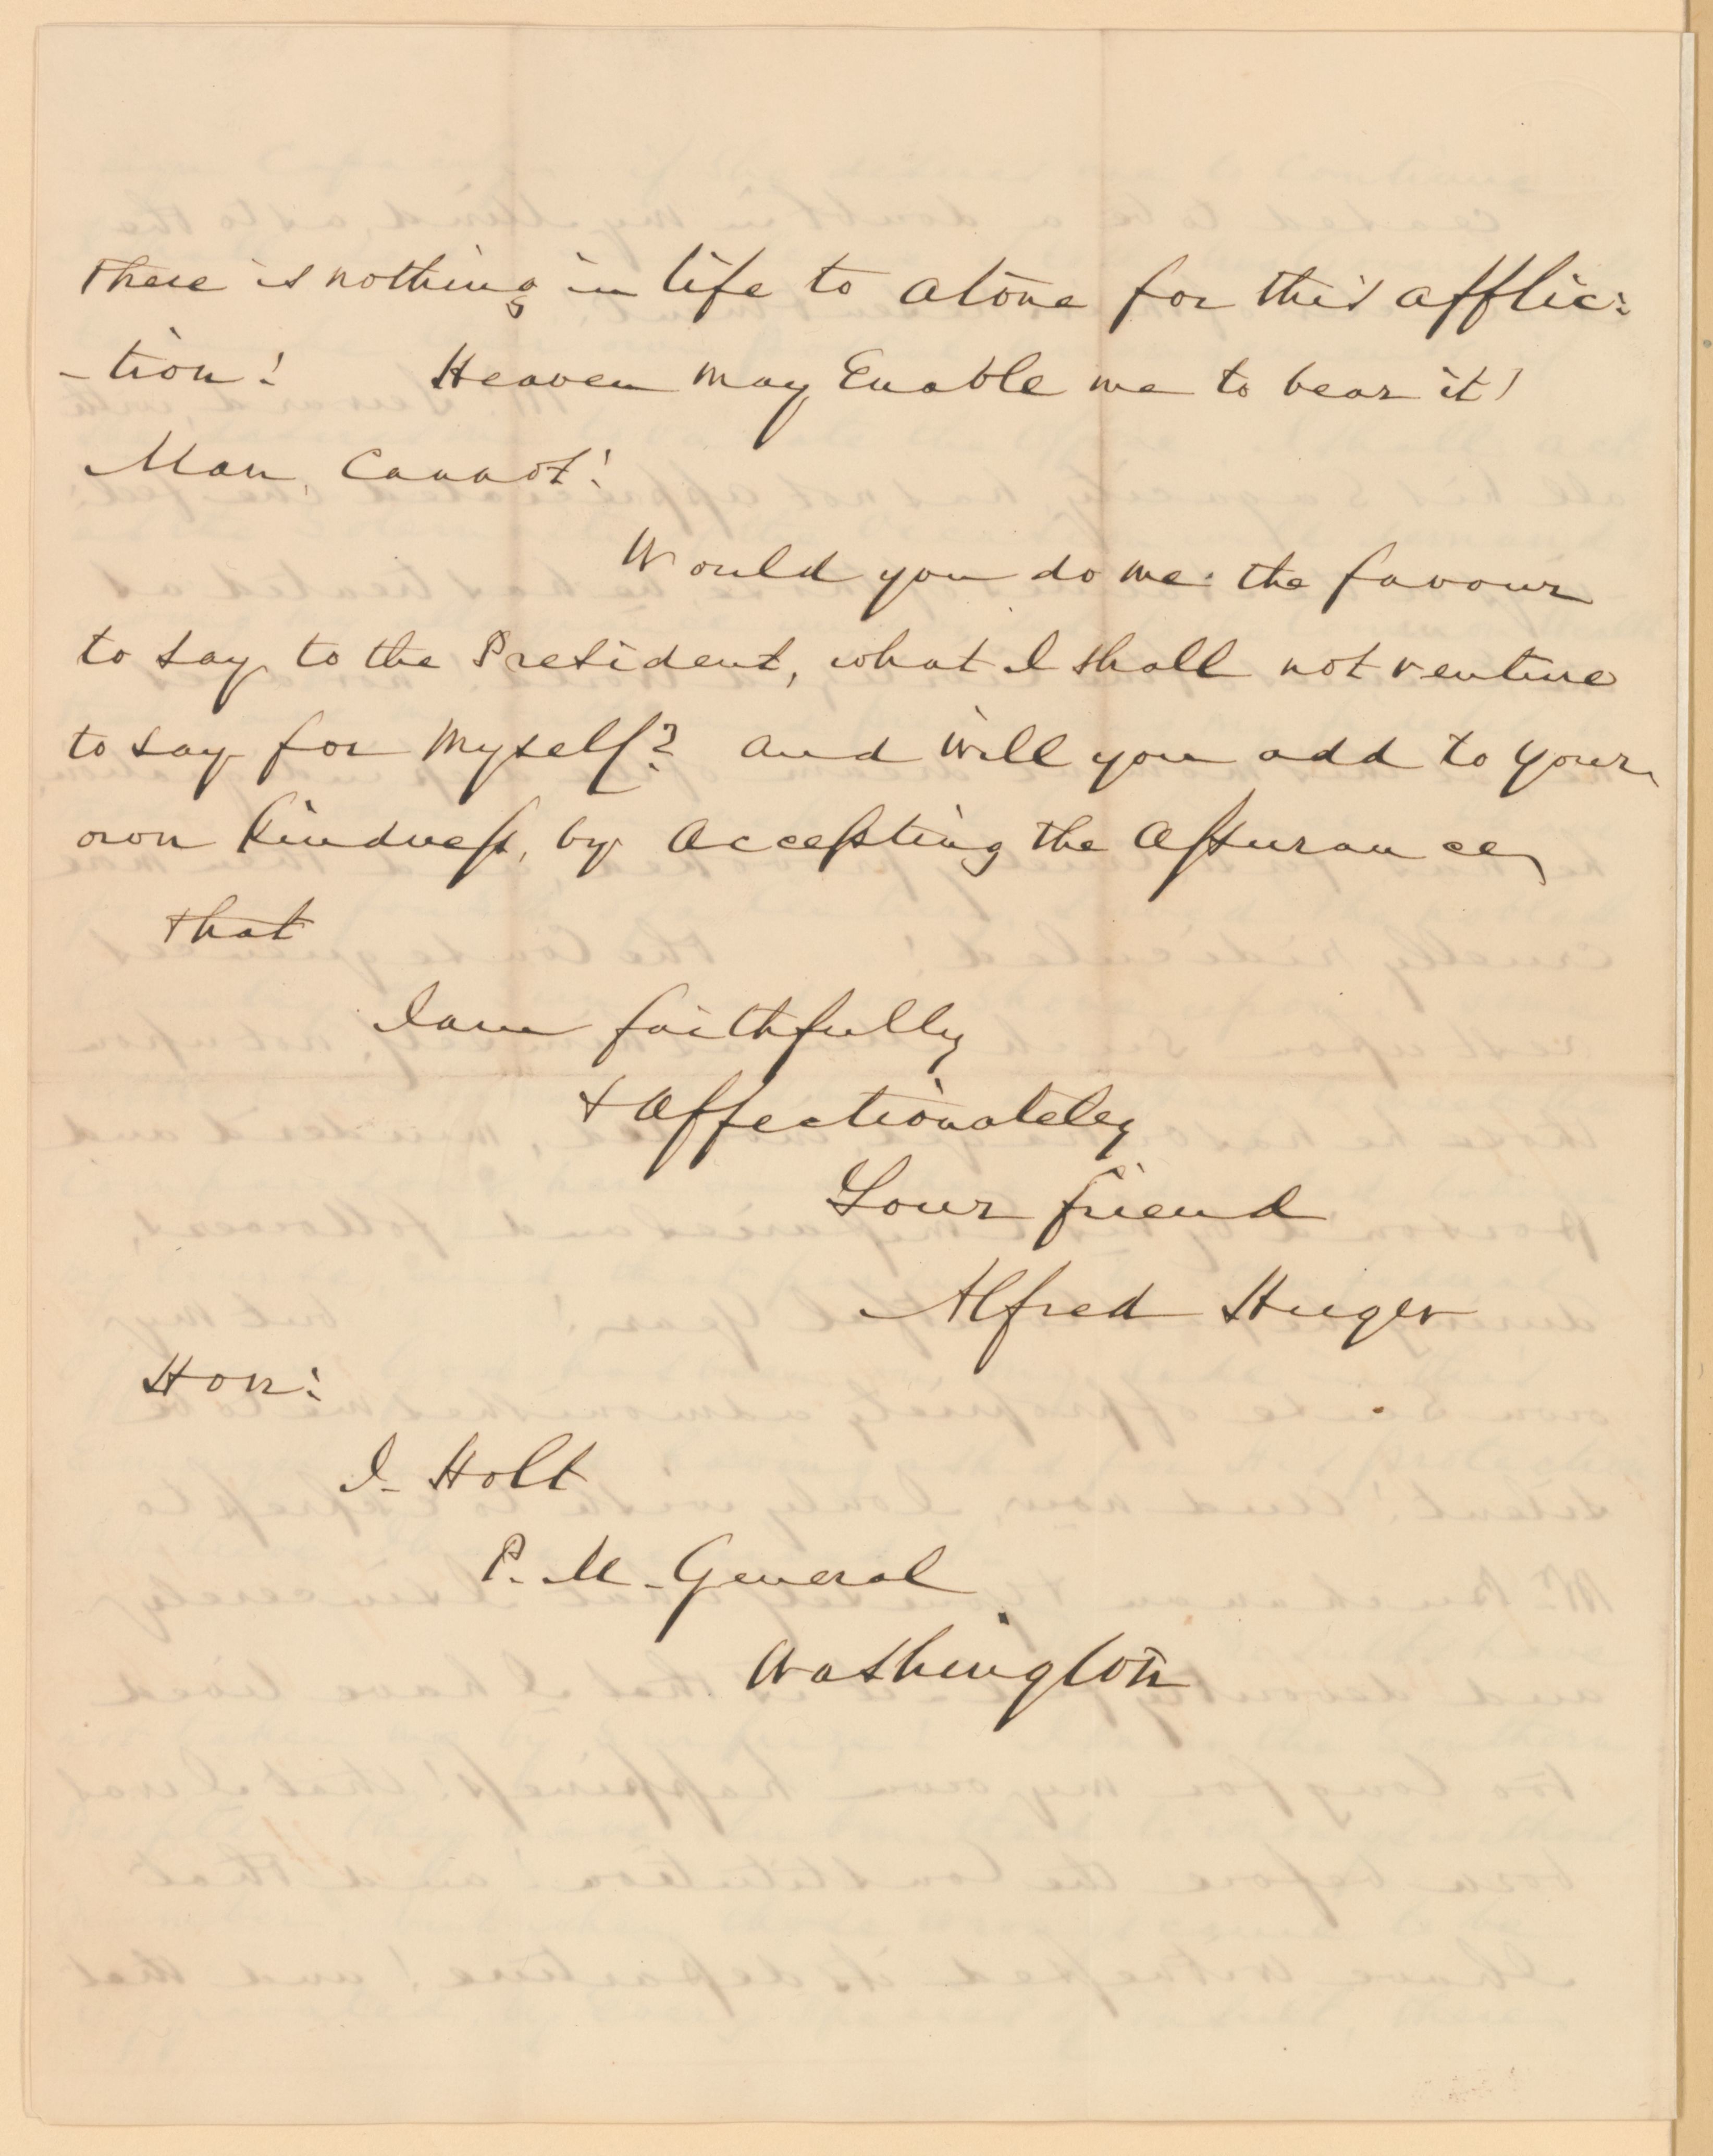 there is nothing in life to atone for this afflic:
-tion! Heaven may Enable me to bear it!
Man, Cannot!
Would you do me the favour
to say to the President, what I shall not venture
to say for myself? and will you add to your
own kindness, by accepting the assurance,
that
I am faithfully
& affectionately
Your friend
Alfred Huger
Hon:
J. Holt
P. M. General
Washington